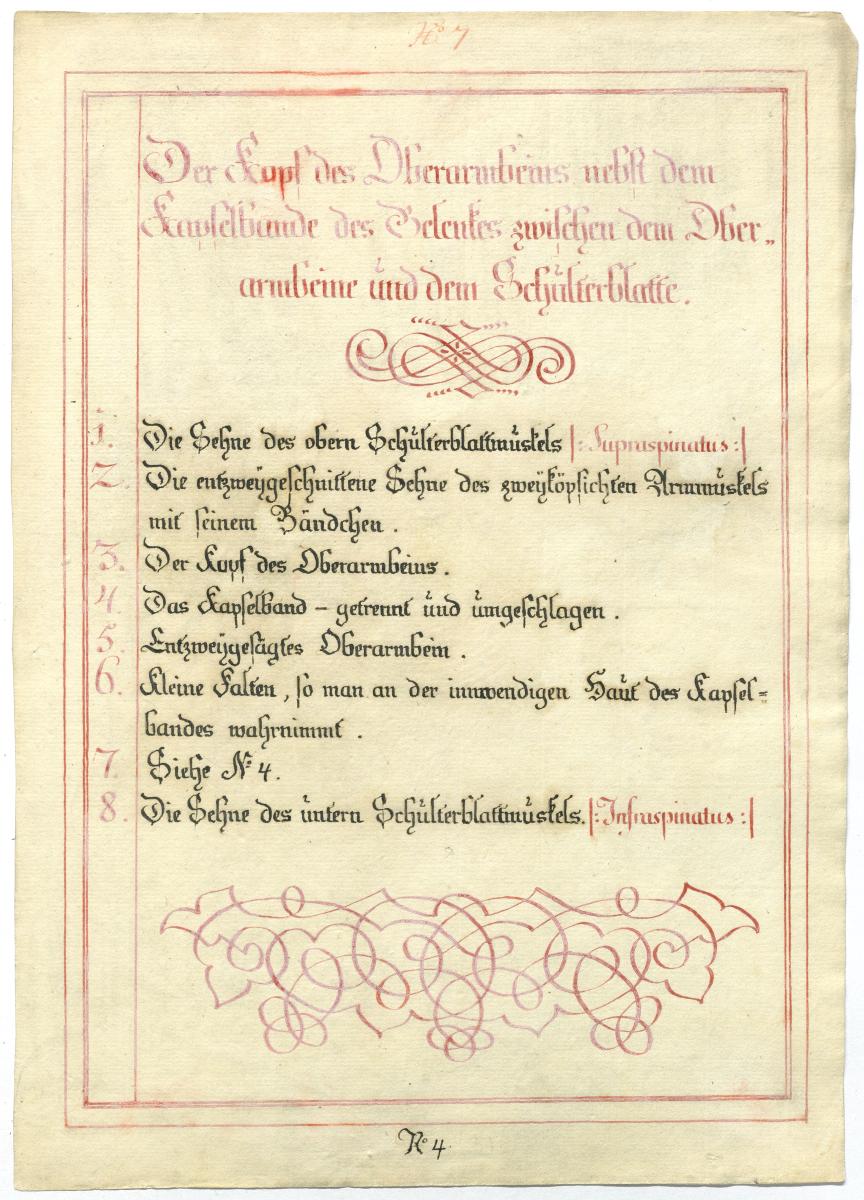 No 7
Der Kopf des Oberarmbeins nebst dem
Kapselbande des Gelenkes zwischen dem Ober„
armbeine und dem Schulterblatte.
1. Die Sehne des obern Schulterblattmuskels |: Supraspinatus :|
2. Die entzweygeschnittene Sehne des zweyköpfichten Armmuskels
mit seinem Bändchen.
3. Der Kopf des Oberarmbeins.
4. Das Kapselband – getrennt und umgeschlagen.
5. Entzweygesägtes Oberarmbein.
6. Kleine Falten, so man an der innwendigen Haut des Kapsel=
bandes wahrnimmt.
7. Siehe No 4.
8. Die Sehne des untern Schulterblattmuskels. |: Infraspinatus :|
No 4